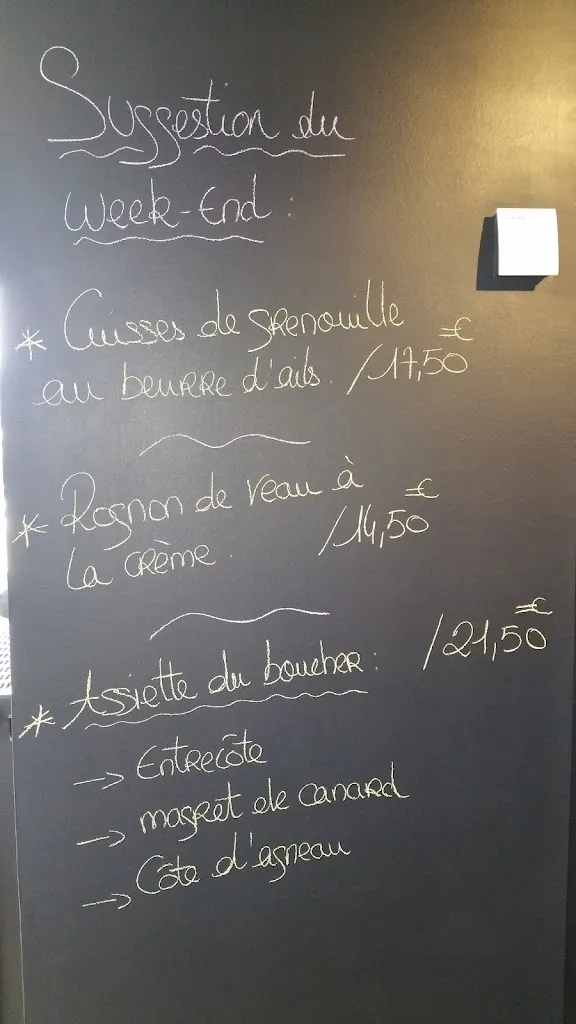 Suggestion du
Week-End :
* Cuisses de grenouille
au beurre d'ails. /17,50€
* Rognon de veau à
la crème. /14,50€
* Assiette du boucher : /21,50€
→ Entrecôte
→ magret de canard
→ Côte d'agneau